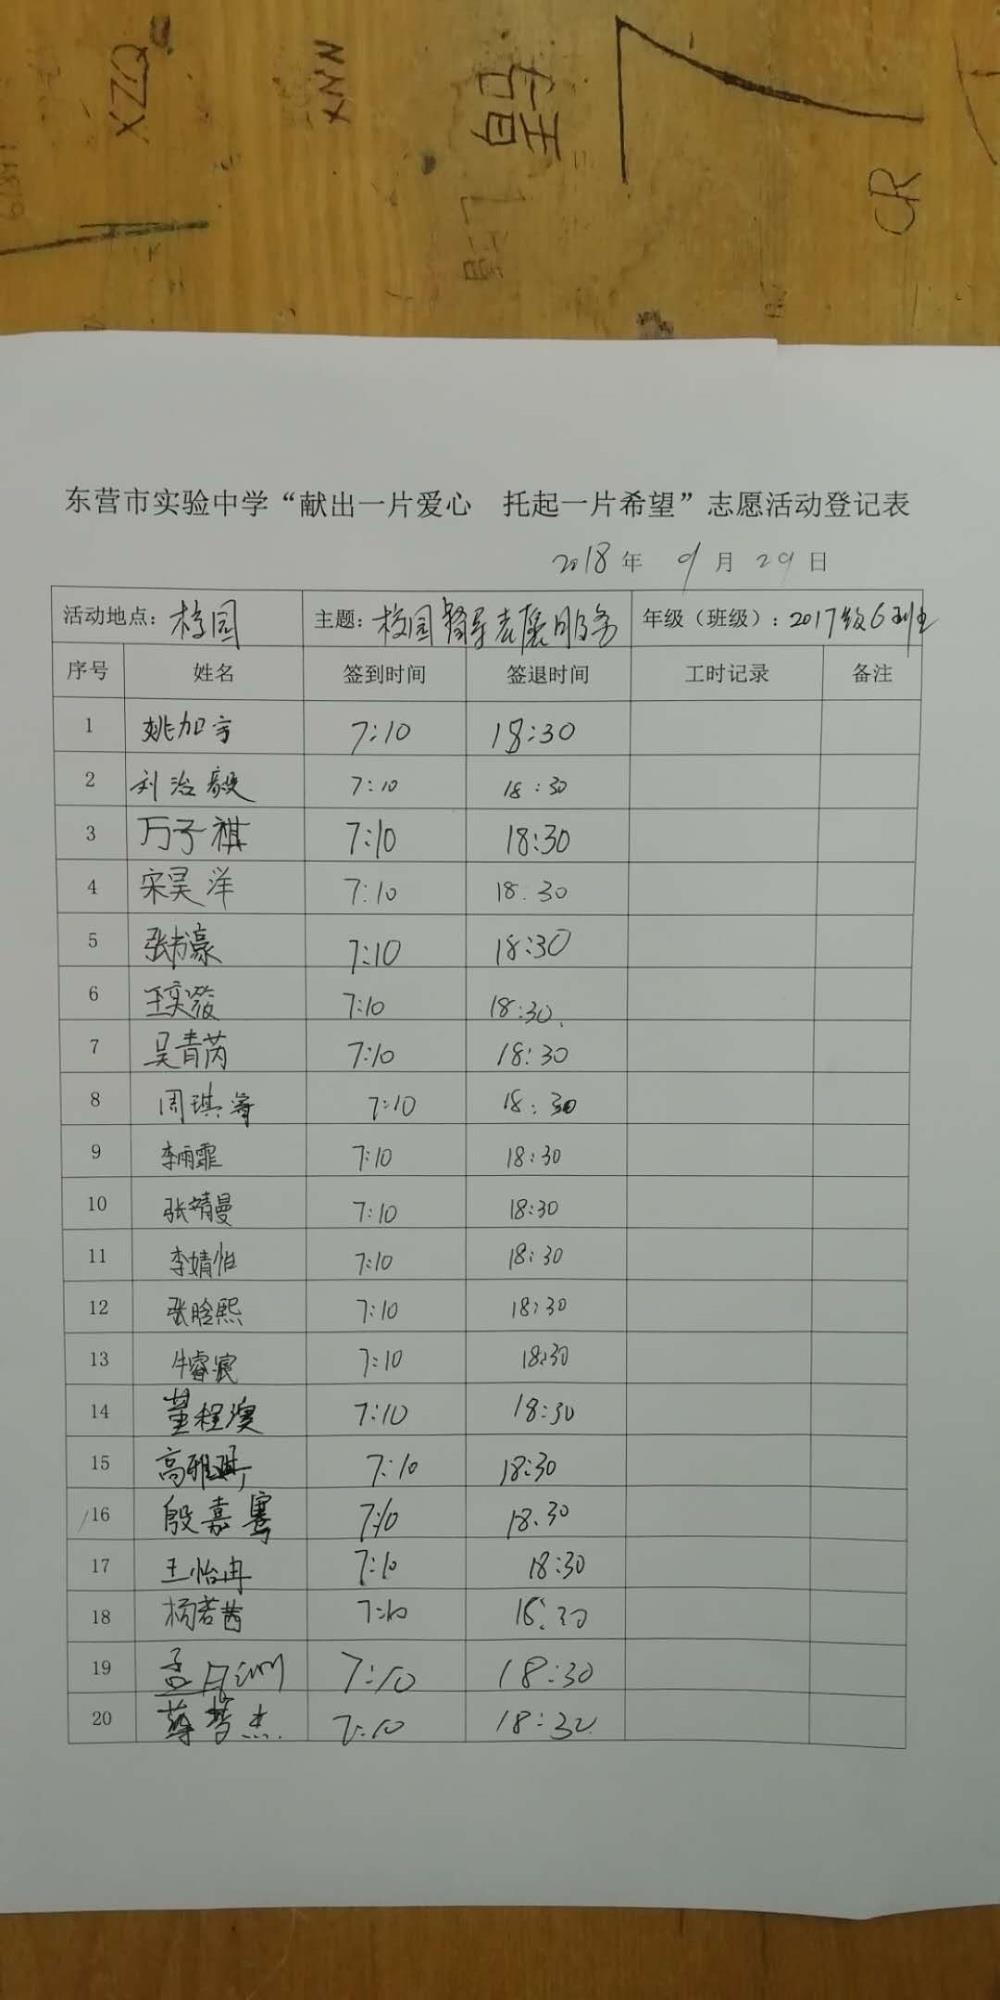 XZQ
XNN
CR
东营市实验中学“献出一片爱心 托起一片希望”志愿活动登记表
2018年 9月 29日
活动地点：校园 主题：校园督导志愿服务 年级（班级）：2017级6班
序号 姓名 签到时间 签退时间 工时记录 备注
1 姚加宇 7:10 18:30
2 刘治毅 7:10 18:30
3 万子祺 7:10 18:30
4 宋昊洋 7:10 18:30
5 张书豪 7:10 18:30
6 王奕璇 7:10 18:30.
7 吴青芮 7:10 18:30
8 周琪 7:10 18:30
9 李雨霏 7:10 18:30
10 张靖曼 7:10 18:30
11 李婧怡 7:10 18:30
12 张晗熙 7:10 18:30
13 牛睿宸 7:10 18:30
14 董程澳 7:10 18:30
15 高雅琪 7:10 18:30
16 殷嘉骞 7:10 18:30
17 王怡冉 7:10 18:30
18 杨若茜 7:10 18:30
19 孟 7:10 18:30
20 梦杰 7:10 18:30